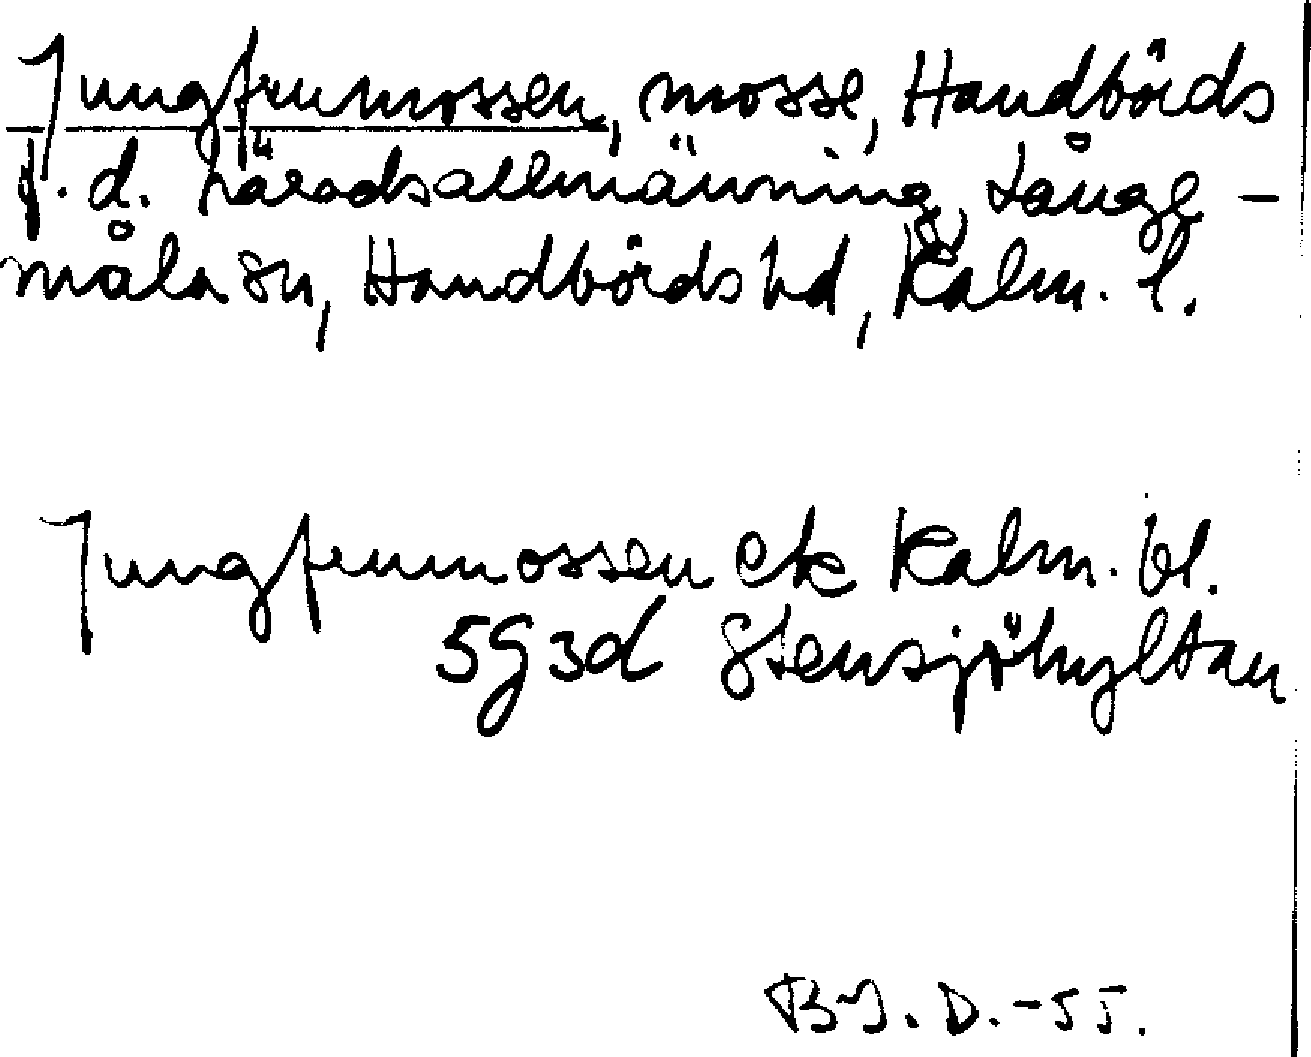 Jungfrumossen, mosse, Handbörds
f. d. häradsallmänning, Långe-
måla sn, Handbörds hd, Kalm. l.
Jungfrumossen ek Kalm. bl.
5G3d Stensjöhyltan
BJ. D. -55.